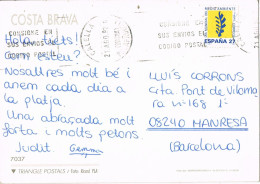 COSTA BRAVA
Hola, tiets!
Com esteu?
Nosaltres molt bé i
anem cada dia a
la platja.
Una abraçada molt
forta i molts petons
Judit. Gemma
7037
TRIANGLE POSTALS
CONSIGNE EN
SUS ENVIOS EL
CODIGO POSTAL
CALELLA
ESPAÑA 27
LLUÍS CORRONS
Crta. Pont de Vilomara
nº 168 1-
08240 MANRESA
(Barcelona)